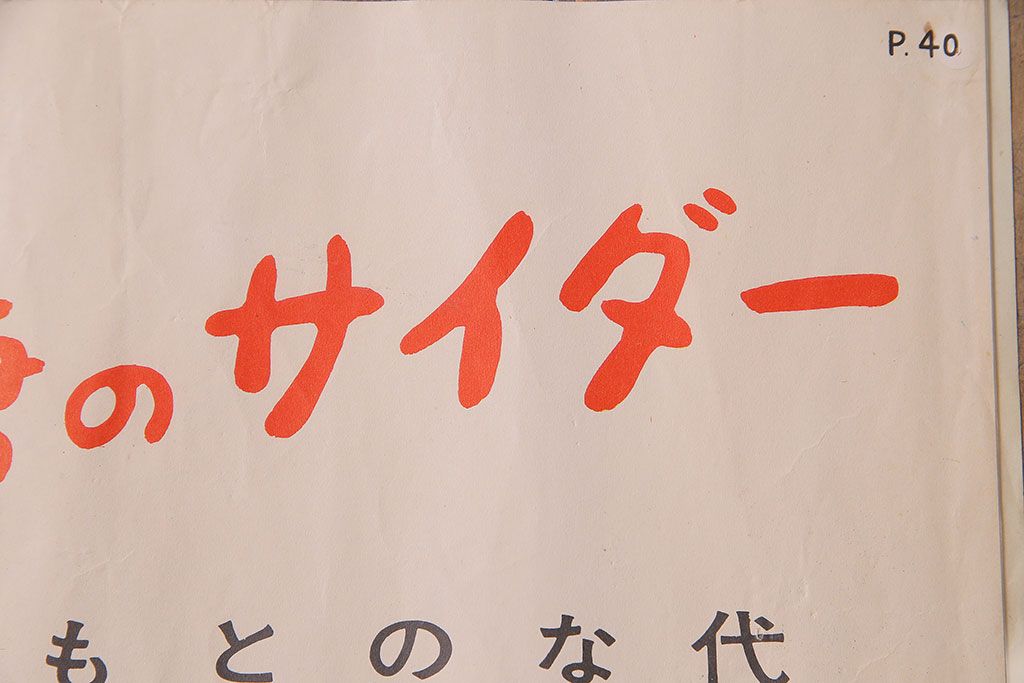 P.40
のサイダー
もとのな代